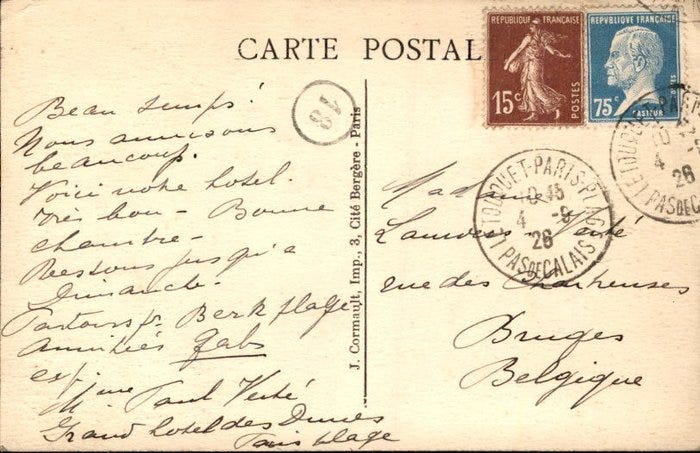 CARTE POSTAL
REPUBLIQUE FRANÇAISE
15c
POSTES
REPVBLIQVE FRANÇAISE
75c
PASTEUR
POSTES
18
LE TOUQUET-PARIS-PLAGE
10 45
4 -9
26
PAS DE CALAIS
LE TOUQUET-PARIS
10
4 -9
26
PAS DE CALAIS
Beau temps!
Nous amusons
beaucoup.
Voici notre hotel.
très bon - Bonne
chambre -
Restons jusqu'a
Dimanche -
Partons pr Berk plage
Amitiés Gabs
exp
M. Paul Verté
Grand hotel des Dunes
Paris plage
J. Cormault, Imp., 3, Cité Bergère - Paris
Madame
Verté
rue des Chartreuses
Bruges
Belgique